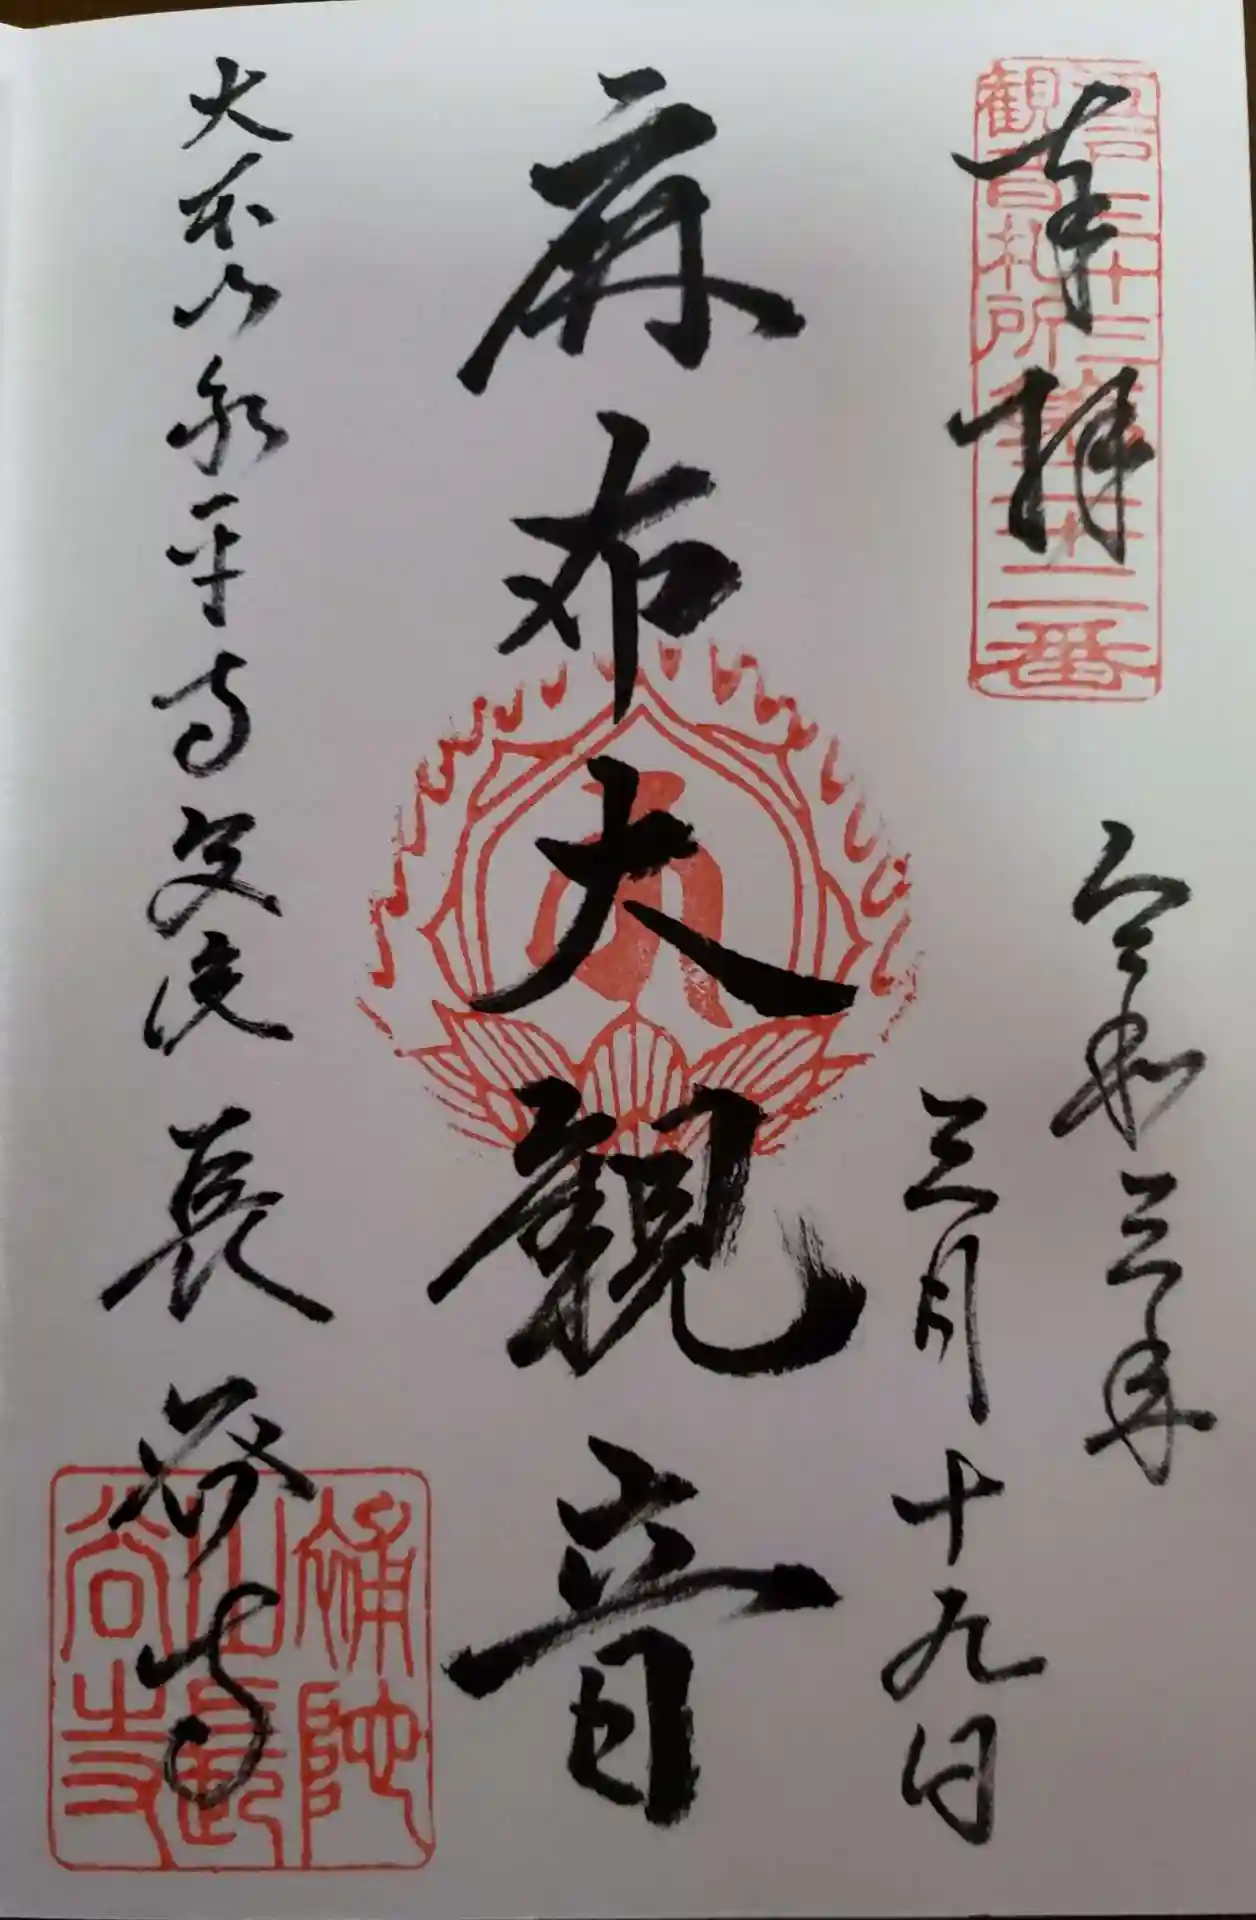 奉拝
江戸三十三
観音札所
第二十二番
令和三年
三月十九日
麻布大観音
大本山永平寺別院 長谷寺
補陀
山長
谷寺